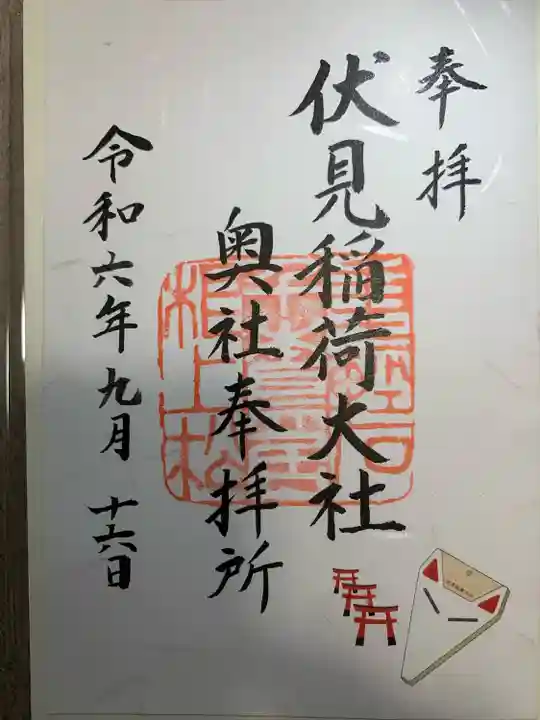 奉拝
伏見稲荷大社
奥社奉拝所
令和六年九月十六日